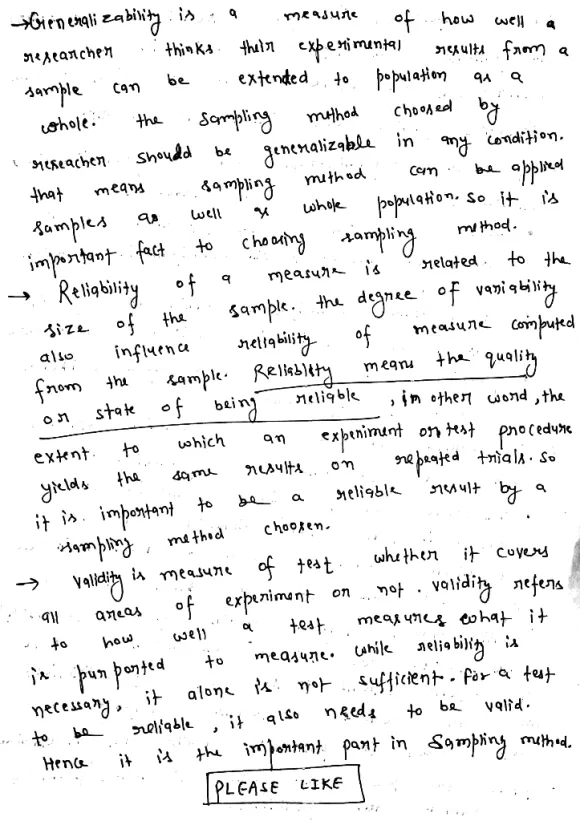 → Generalizability is a measure of how well a
researcher thinks their experimental results from a
sample can be extended to population as a
whole. the sampling method choosed by
reseacher should be generalizable in any condition.
that means sampling method can be applied
samples as well as whole population. so it is
important fact to choosing sampling method.
→ Reliability of a measure is related to the
size of the sample. the degree of variability
also influence reliability of measure computed
from the sample. Reliablity means the quality
or state of being reliable, in other word, the
extent to which an experiment or test procedure
yields the same results on repeated trials. so
it is important to be a reliable result by a
sampling method choosen.
→ Validity is measure of test whether it covers
all areas of experiment or not. validity refers
to how well a test measures what it
is purported to measure. while reliability is
necessary, it alone is not sufficient. for a test
to be reliable, it also needs to be valid.
Hence it is the important part in Sampling method.
PLEASE LIKE